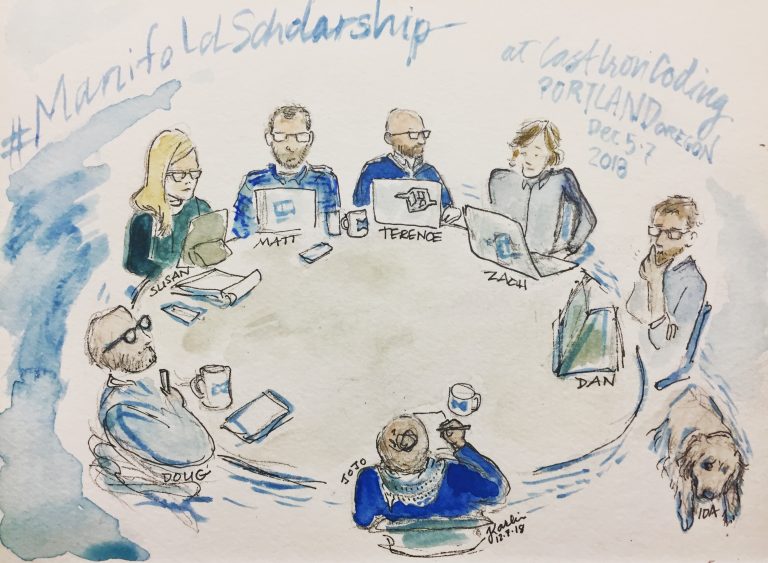 #ManifoldScholarship
at Cast Iron Coding
PORTLAND OREGON
Dec 5-7
2018
MATT
TERENCE
SUSAN
ZACH
DAN
DOUG
JOJO
IDA
12.7.18